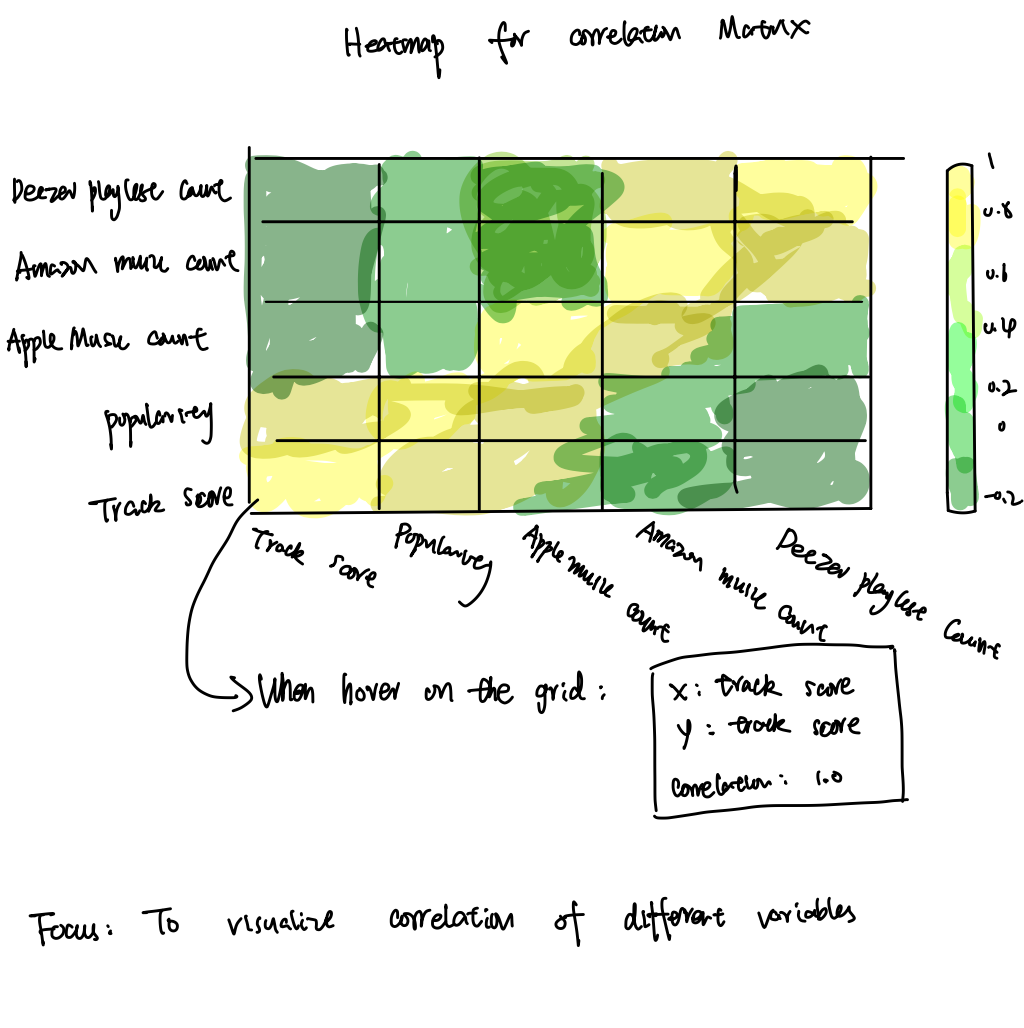 Heatmap for correlation Matrix
Deezer playlist count
Amazon music count
Apple Music count
popularity
Track score
1
0.8
0.6
0.4
0.2
0
-0.2
Track score
Popularity
Apple music count
Amazon music count
Deezer playlist count
When hover on the grid:
X: track score
y: track score
correlation: 1.0
Focus: To visualize correlation of different variables